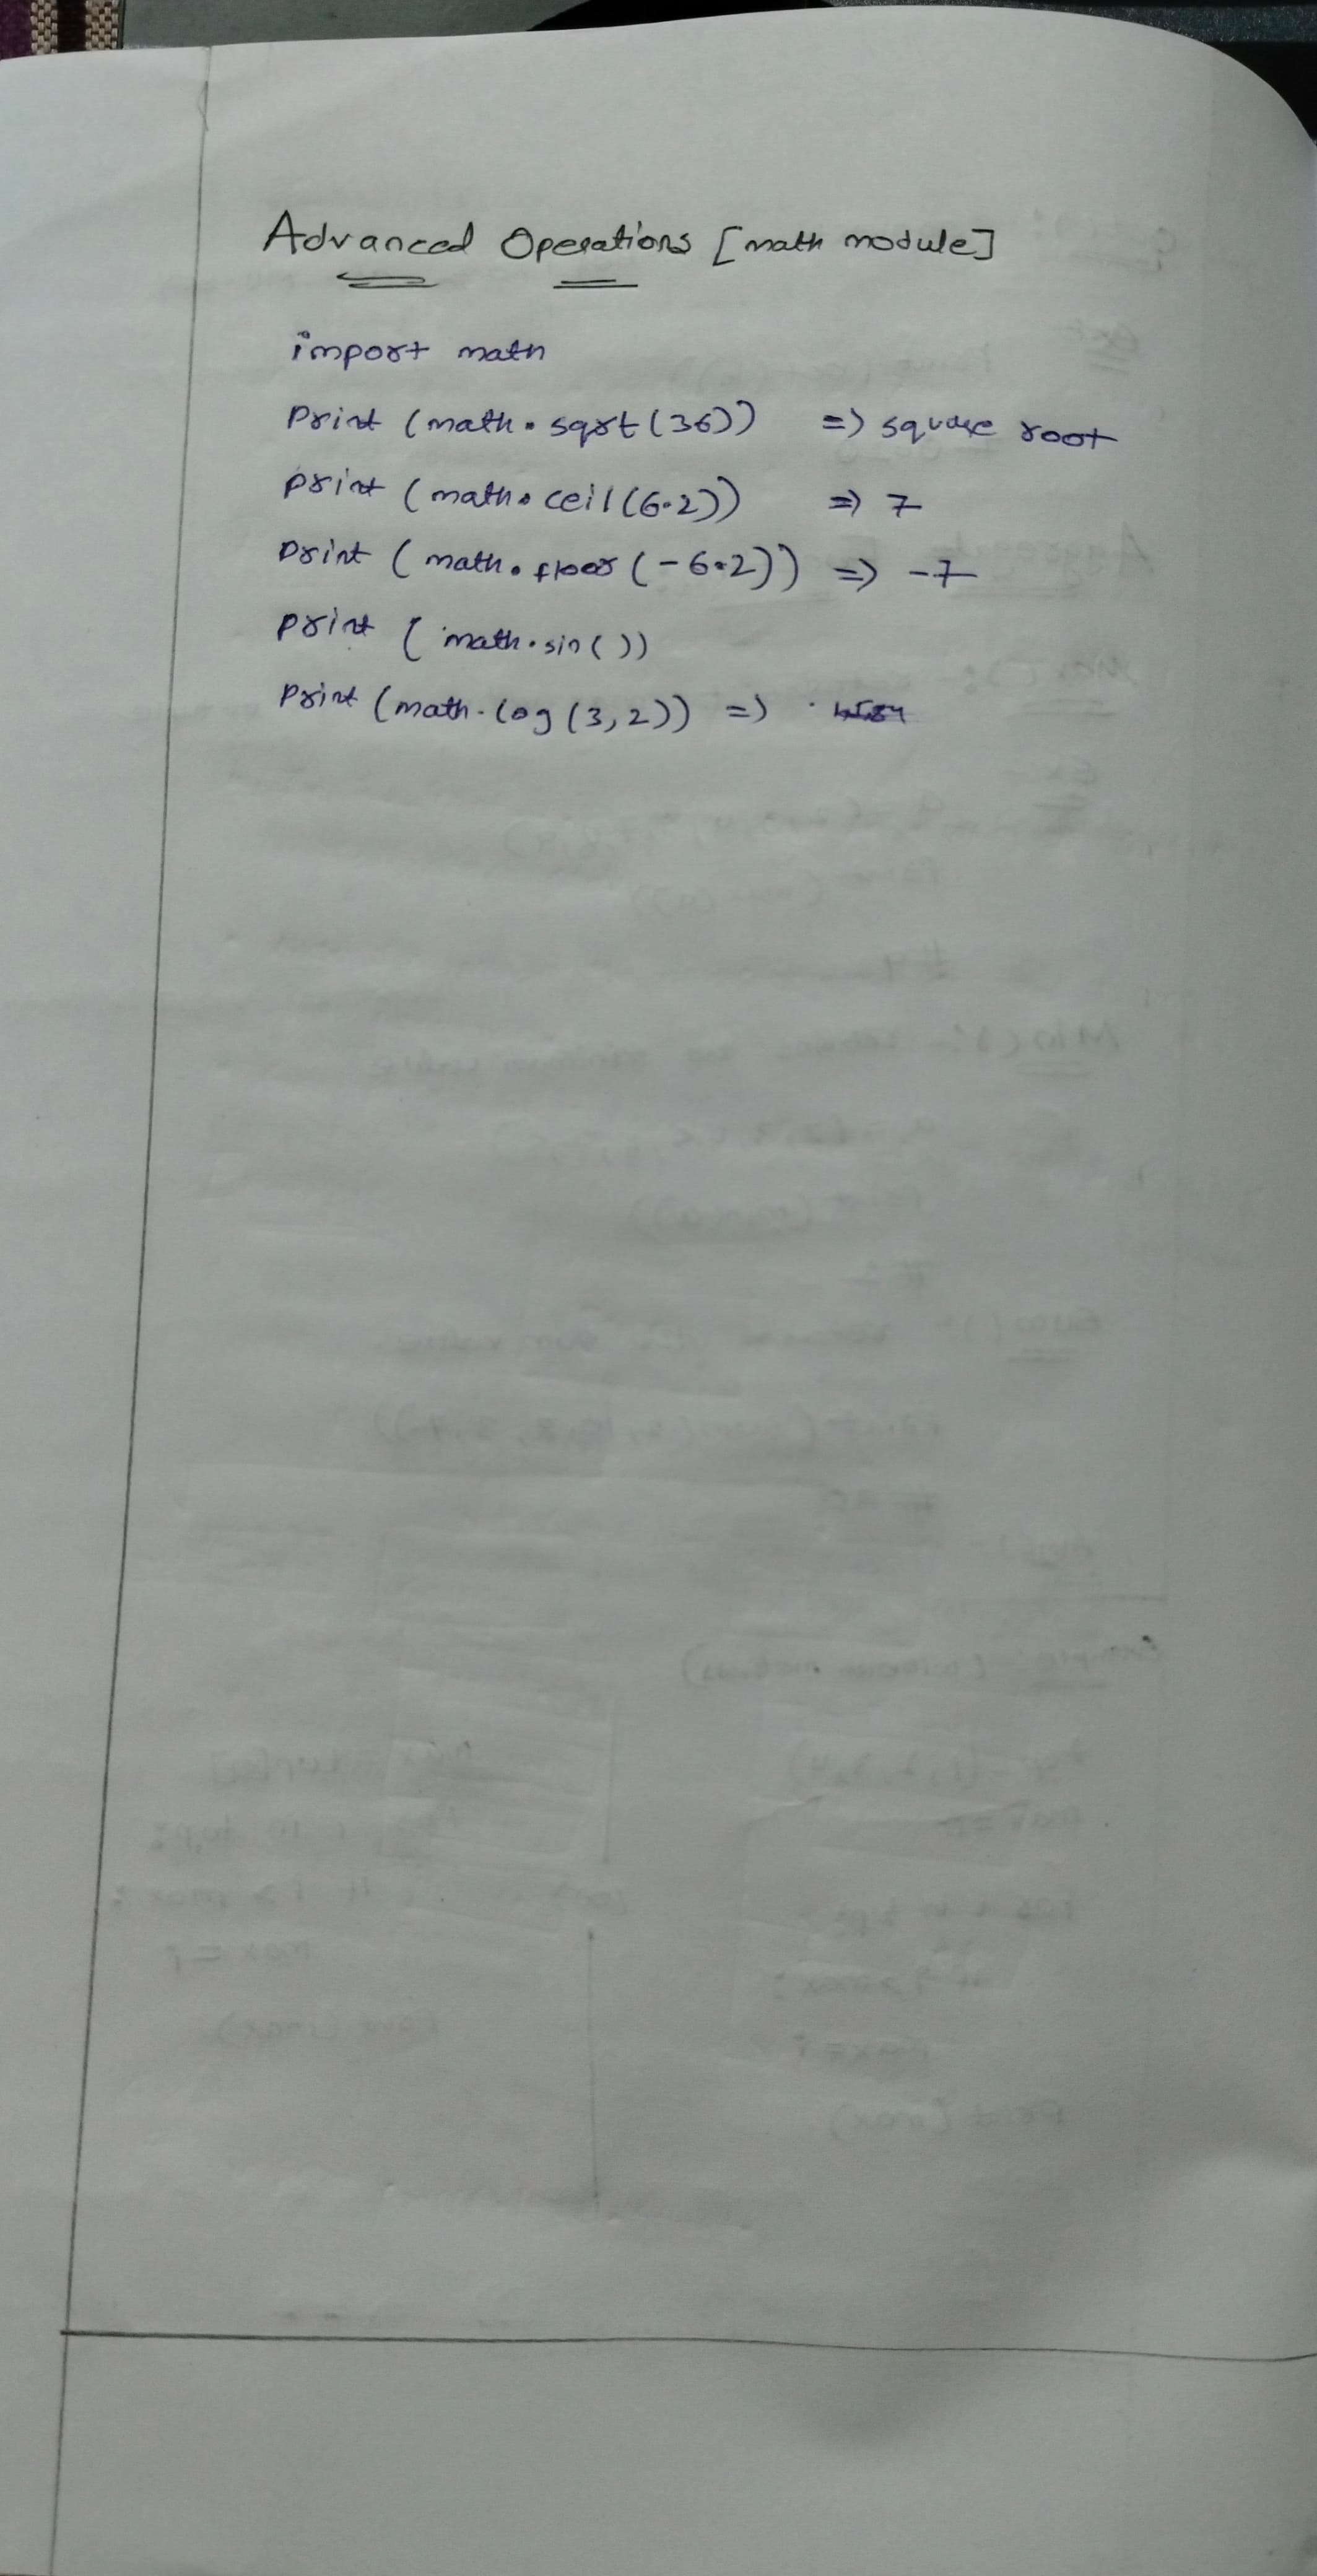 Advanced Operations [math module]
import math
Print (math.sqrt(36)) => square root
print (math.ceil(6.2)) => 7
print (math.floor(-6.2)) => -7
print (math.sin())
Print (math.log(3,2)) =>